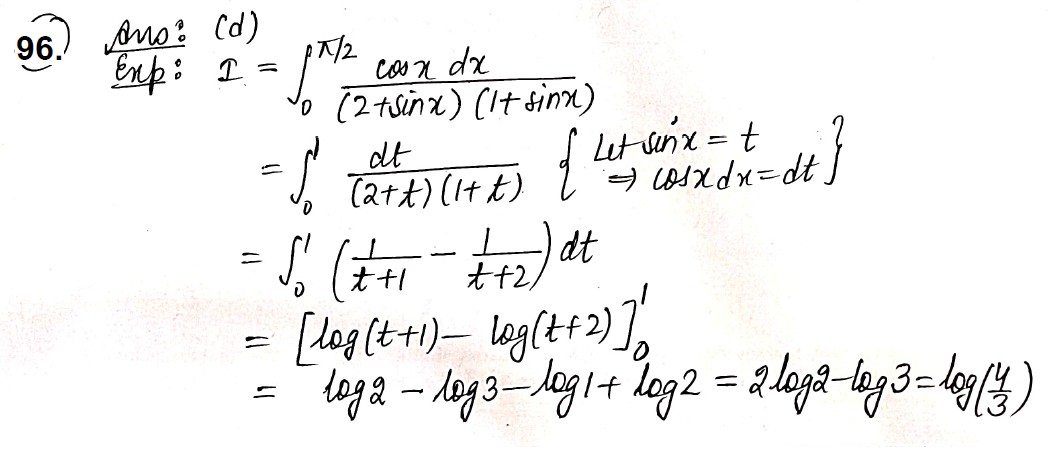 96. Ans: (d)
Exp: I = ∫₀^π/2 cosx dx / (2+sinx) (1+sinx)
= ∫₀¹ dt / (2+t) (1+t) { Let sinx = t
⇒ cosx dx = dt }
= ∫₀¹ (1/(t+1) − 1/(t+2)) dt
= [log(t+1) − log(t+2)]₀¹
= log2 − log3 − log1 + log2 = 2log2 − log3 = log(4/3)